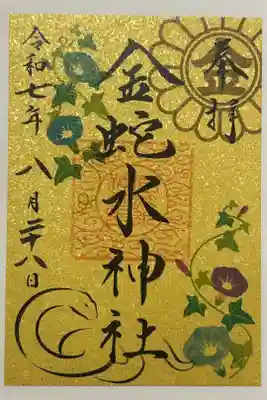 奉拝
金
金蛇水神社
令和七年 八月二十八日